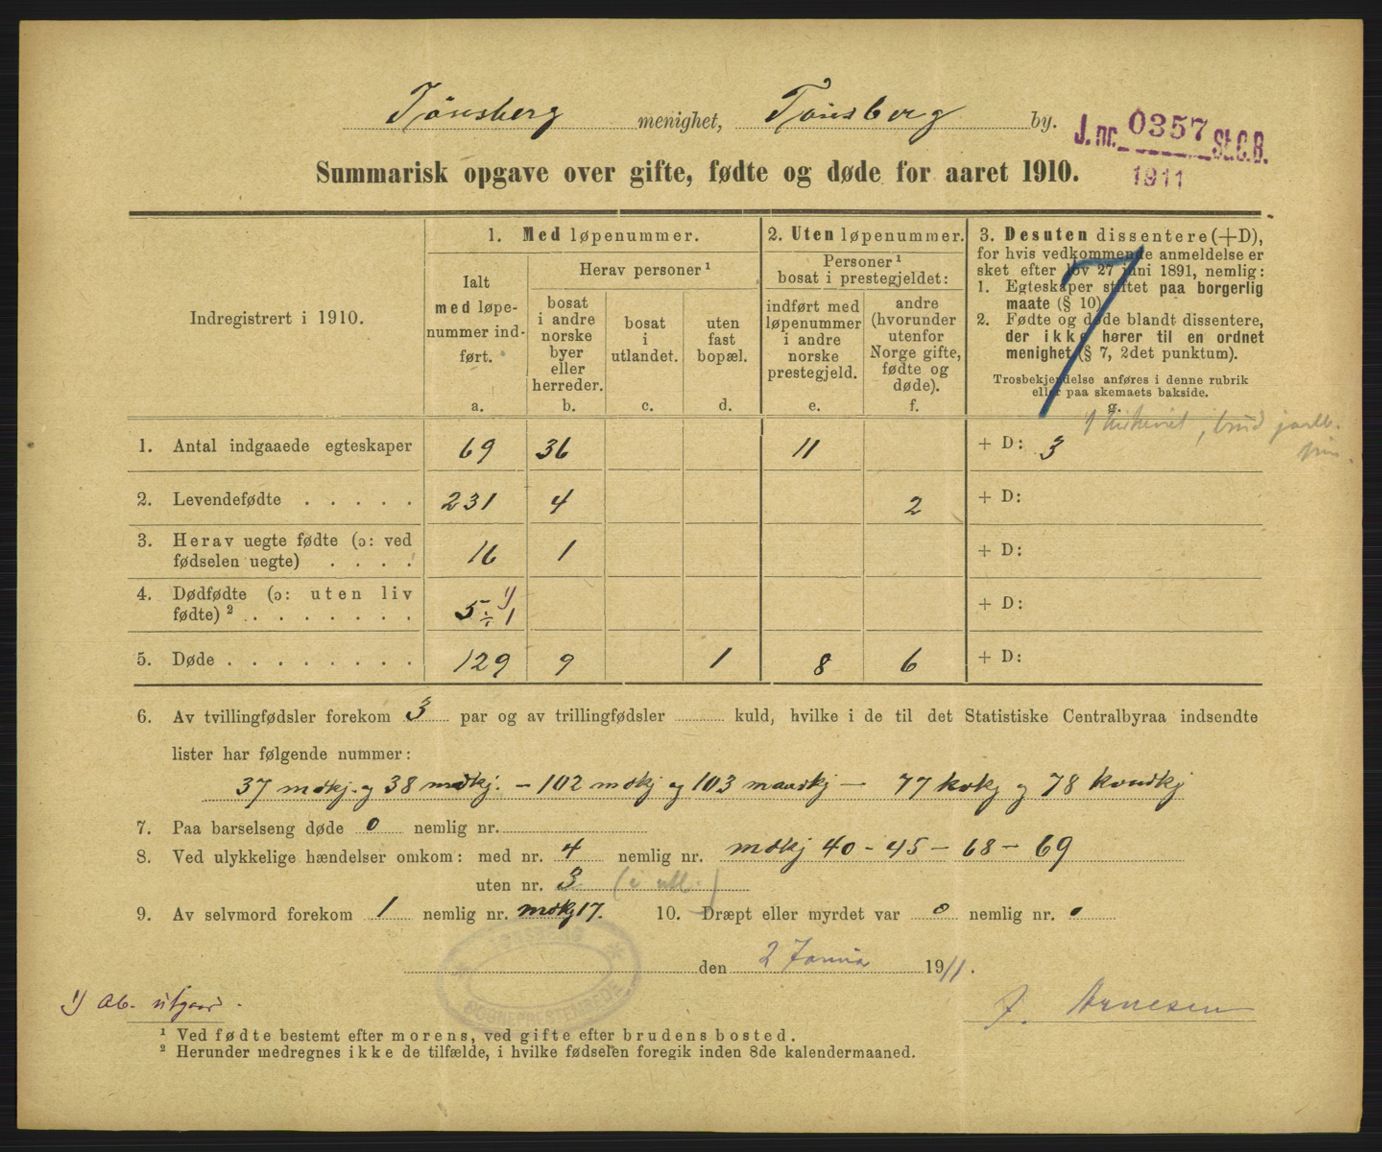 Tönsberg menighet, Tönsberg by.
J. nr. 0357 St.C.B.
1911
Summarisk opgave over gifte, fødte og døde for aaret 1910.
Indregistrert i 1910.
1. Med løpenummer.
Ialt med løpenummer indført.
a.
Herav personer¹
bosat i andre norske byer eller herreder.
b.
bosat i utlandet.
c.
uten fast bopæl.
d.
2. Uten løpenummer.
Personer¹ bosat i prestegjeldet:
indført med løpenummer i andre norske prestegjeld.
e.
andre (hvorunder utenfor Norge gifte, fødte og døde).
f.
3. Desuten dissentere (+D),
for hvis vedkommende anmeldelse er
sket efter lov 27 juni 1891, nemlig:
1. Egteskaper stiftet paa borgerlig
maate (§ 10)
2. Fødte og døde blandt dissentere,
der ikke hører til en ordnet
menighet (§ 7, 2det punktum).
Trosbekjendelse anføres i denne rubrik
eller paa skemaets bakside.
g.
7
1. Antal indgaaede egteskaper 69 36 11 + D: 3
2. Levendefødte . . . . . 231 4 2 + D:
3. Herav uegte fødte (ɔ: ved
fødselen uegte) . . . . 16 1 + D:
4. Dødfødte (ɔ: uten liv
fødte)² . . . . . . . . 5 ÷ 1 ¹) + D:
5. Døde . . . . . . . . . 129 9 1 8 6 + D:
6. Av tvillingfødsler forekom 3 par og av trillingfødsler kuld, hvilke i de til det Statistiske Centralbyraa indsendte
lister har følgende nummer:
37 mdkj. og 38 mdkj. – 102 mdkj og 103 mandkj – 77 kvkj og 78 kvndkj
7. Paa barselseng døde 0 nemlig nr.
8. Ved ulykkelige hændelser omkom: med nr. 4 nemlig nr. mdkj 40 - 45 - 68 - 69
uten nr. 3 (i utl.)
9. Av selvmord forekom 1 nemlig nr. mdkj 17. 10. Dræpt eller myrdet var 0 nemlig nr. 0
den 2 Januar 1911.
TØNSBERG
SOGNEPRESTEMBEDE
J. Arnesen
¹) Ab. utgaar.
¹ Ved fødte bestemt efter morens, ved gifte efter brudens bosted.
² Herunder medregnes ikke de tilfælde, i hvilke fødselen foregik inden 8de kalendermaaned.